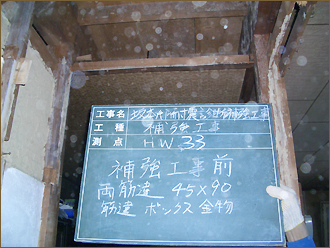 工事名
工種 補強工事
測点 HW 33
補強工事前
両筋違 45×90
筋違 ボックス金物